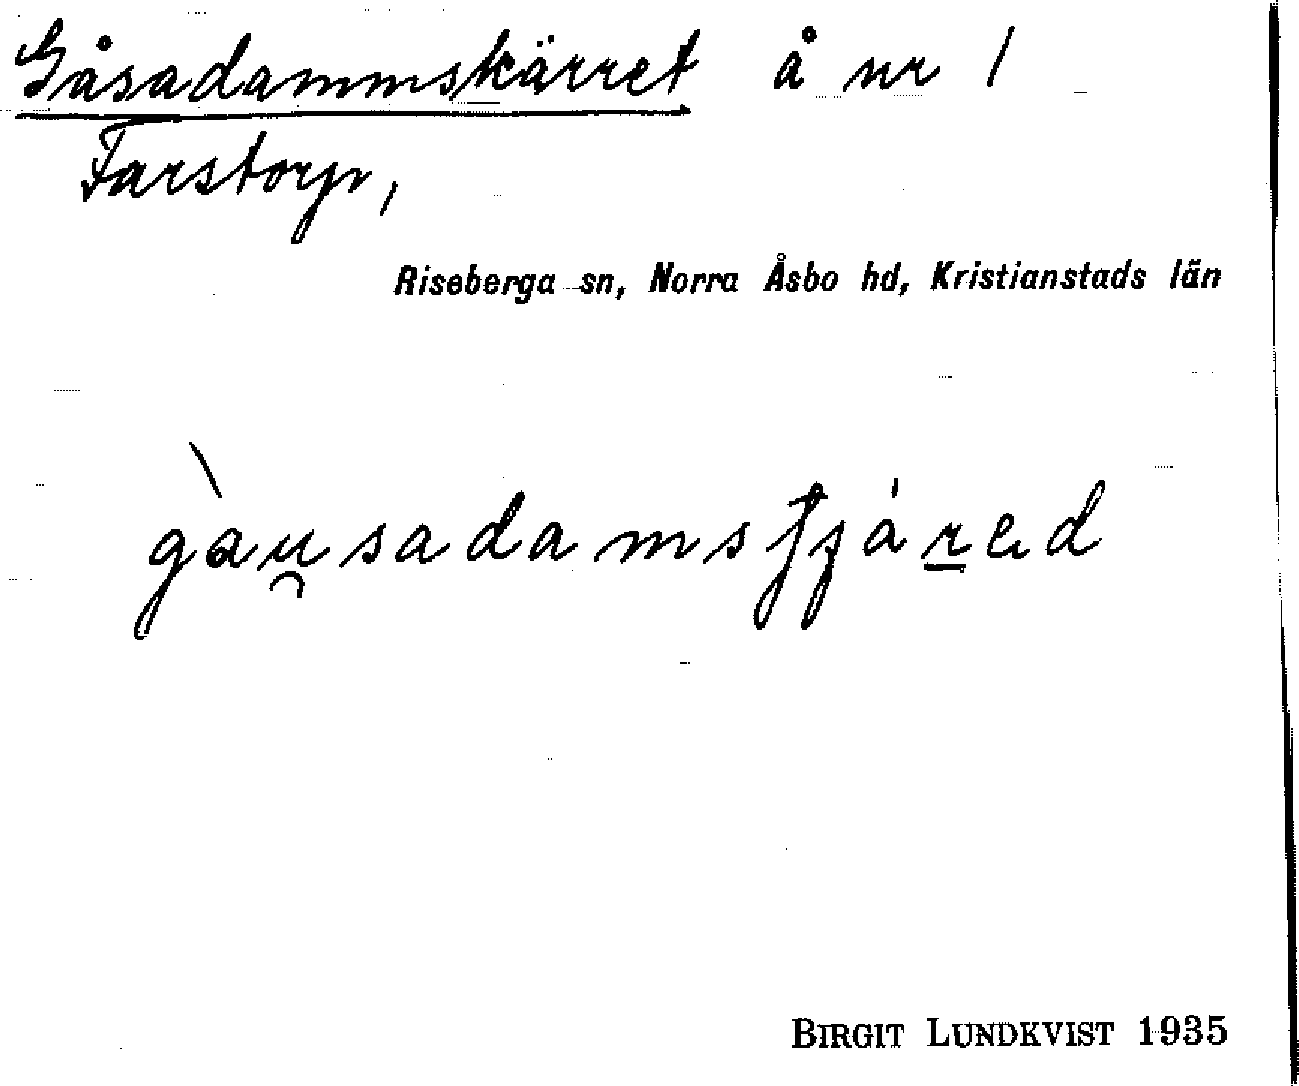 Gåsadammskärret å nr 1
Farstorp,
Riseberga sn, Norra Åsbo hd, Kristianstads län
gàu̯sadamsʃjár̠ed
BIRGIT LUNDKVIST 1935